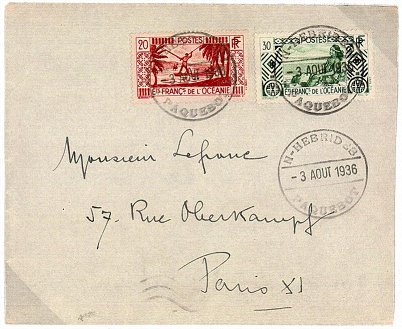 20 POSTES RF
ETS FRANÇS DE L'OCÉANIE
30 POSTES RF
ETS FRANÇS DE L'OCÉANIE
PAQUEBOT
N-HEBRIDES
3 AOUT 1936
PAQUEBOT
N-HEBRIDES
- 3 AOUT 1936
PAQUEBOT
Monsieur Lefranc
57. Rue Oberkampf
Paris XI